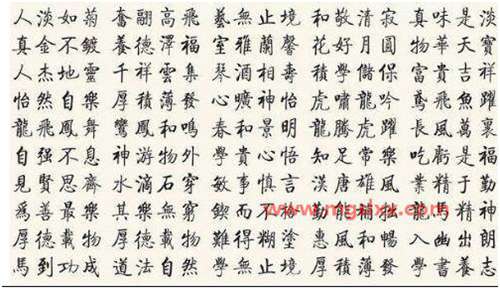 人淡如菊 奮翮高飛 藝無止境 和敬清寂 真味是淡
真金不鍍 養德澤福 室雅蘭馨 花好月圓 物華天寶
人杰地靈 千祥雲集 琴酒相壽 學儲 富貴吉祥
怡然自樂 厚積薄發 心曠神怡 虎嘯龍吟 鳶飛魚躍
龍飛鳳舞 鸞鳳和鳴 春和景明 龍騰虎躍 長風萬裏
自强不息 神游物外 學貴心悟 知足常樂 吃虧是福
見賢思齊 水滴石穿 敏事慎言 漢唐雄風 業精於勤
為善最樂 其樂無窮 鍥而不 勤 精神
厚德載物 難得糊塗 惠風和暢 入幽出朗
馬到功成 道法自然 學無止境 厚積薄發 學書養志